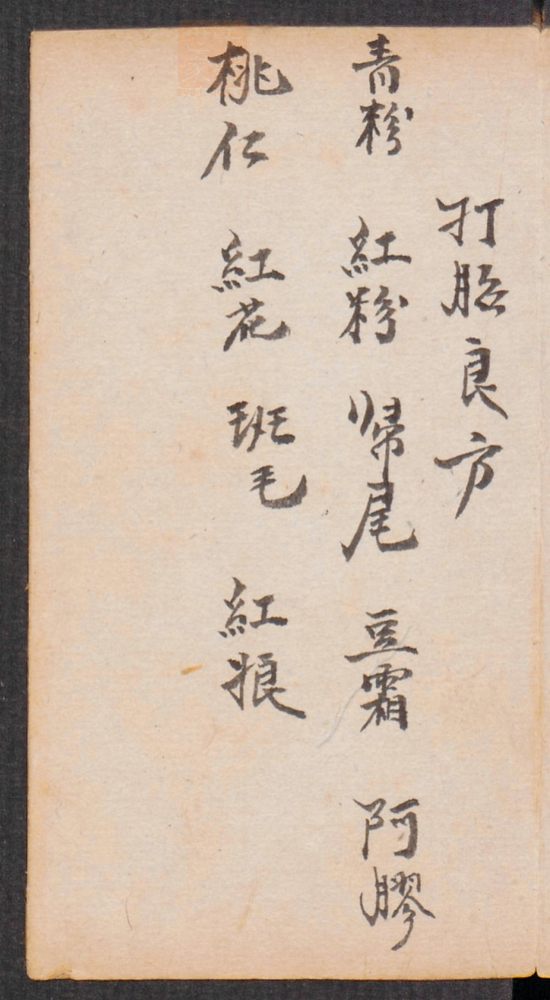 打胎良方
青粉 紅粉 归尾 豆霜 阿膠
桃仁 紅花 斑毛 紅娘